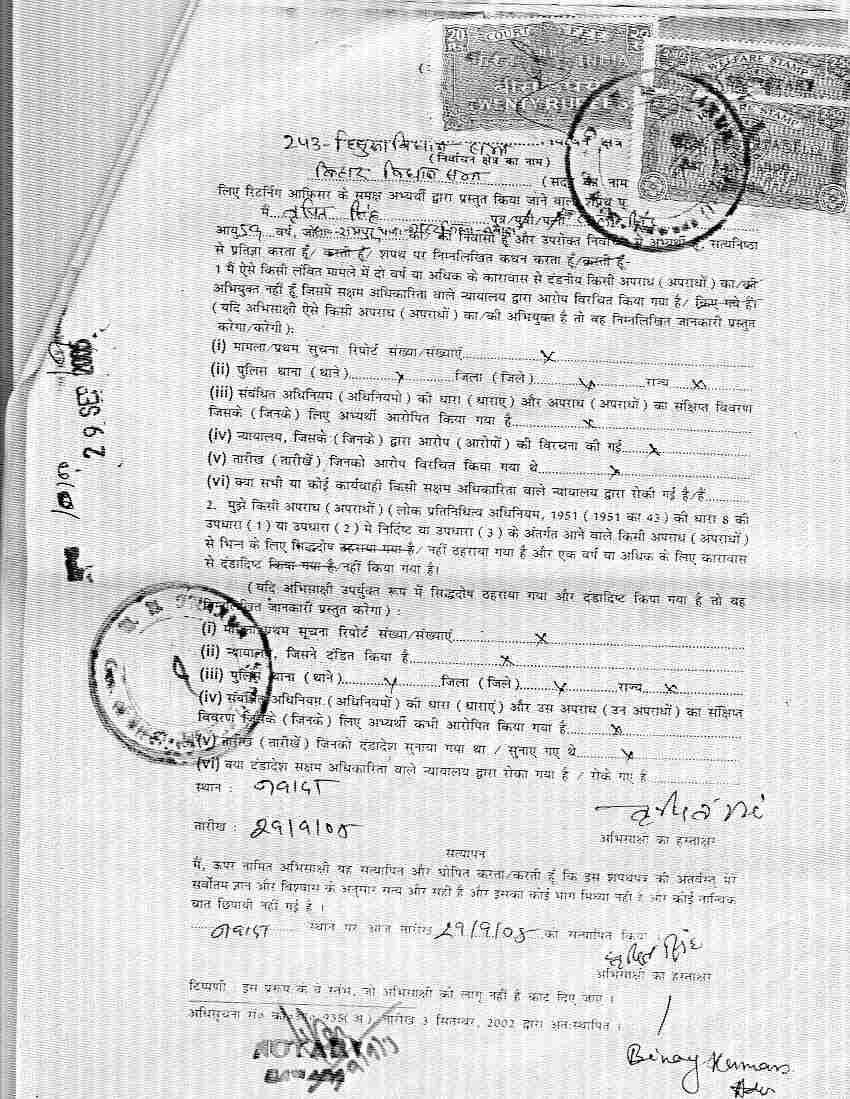 20 COURT FEE 20
Rs. INDIA
बीस रुपये
TWENTY RUPEES
WELFARE STAMP
243-हिसुआ विधान सभा
(निर्वाचन क्षेत्र का नाम)
बिहार विधान सभा (सदन का नाम
लिए रिटर्निंग आफिसर के समक्ष अभ्यर्थी द्वारा प्रस्तुत किया जाने वाला
मैं सिंह पुत्र/पुत्री/पत्नी
आयु वर्ष, जो का निवासी हूँ और उपरोक्त से अभ्यर्थी हूँ, सत्यनिष्ठा
से प्रतिज्ञा करता हूँ/ करती हूँ/ शपथ पर निम्नलिखित कथन करता हूँ/करती हूँ-
1 मैं ऐसे किसी लंबित मामले में दो वर्ष या अधिक के कारावास से दंडनीय किसी अपराध (अपराधों) का/की
अभियुक्त नहीं हूँ जिसमें सक्षम अधिकारिता वाले न्यायालय द्वारा आरोप विरचित किया गया है/ किए गये हों
(यदि अभिसाक्षी ऐसे किसी अपराध (अपराधों) का/की अभियुक्त है तो वह निम्नलिखित जानकारी प्रस्तुत
करेगा/करेगी):
(i) मामला/प्रथम सूचना रिपोर्ट संख्या/संख्याएं x
(ii) पुलिस थाना (थाने) x जिला (जिले) x राज्य x
(iii) संबंधित अधिनियम (अधिनियमों) की धारा (धाराएं) और अपराध (अपराधों) का संक्षिप्त विवरण
जिसके (जिनके) लिए अभ्यर्थी आरोपित किया गया है x
(iv) न्यायालय, जिसके (जिनके) द्वारा आरोप (आरोपों) की विरचना की गई x
(v) तारीख (तारीखें) जिनको आरोप विरचित किया गया थे x
(vi) क्या सभी या कोई कार्यवाही किसी सक्षम अधिकारिता वाले न्यायालय द्वारा रोकी गई है/हैं
2. मुझे किसी अपराध (अपराधों) (लोक प्रतिनिधित्व अधिनियम, 1951 (1951 का 43) की धारा 8 की
उपधारा (1) या उपधारा (2) में निर्दिष्ट या उपधारा (3) के अंतर्गत आने वाले किसी अपराध (अपराधों)
से भिन्न के लिए सिद्धदोष ठहराया गया है/ नहीं ठहराया गया है और एक वर्ष या अधिक के लिए कारावास
से दंडादिष्ट किया गया है/नहीं किया गया है।
(यदि अभिसाक्षी उपर्युक्त रूप में सिद्धदोष ठहराया गया और दंडादिष्ट किया गया है तो वह
निम्नलिखित जानकारी प्रस्तुत करेगा) :
(i) मामला/प्रथम सूचना रिपोर्ट संख्या/संख्याएं x
(ii) न्यायालय, जिसने दंडित किया है x
(iii) पुलिस थाना (थाने) x जिला (जिले) x राज्य x
(iv) संबंधित अधिनियम (अधिनियमों) की धारा (धाराएं) और उस अपराध (उन अपराधों) का संक्षिप्त
विवरण जिसके (जिनके) लिए अभ्यर्थी कभी आरोपित किया गया है x
(v) तारीख (तारीखें) जिनको दंडादेश सुनाया गया था / सुनाए गए थे x
(vi) क्या दंडादेश सक्षम अधिकारिता वाले न्यायालय द्वारा रोका गया है / रोके गए है
स्थान : नवादा
तारीख : 29/9/05
अभिसाक्षी का हस्ताक्षर
सत्यापन
मैं, ऊपर नामित अभिसाक्षी यह सत्यापित और घोषित करता/करती हूँ कि इस शपथपत्र की अंतर्वस्तु मेरे
सर्वोतम ज्ञान और विश्वास के अनुसार सत्य और सही है और इसका कोई भाग मिथ्या नहीं है और कोई तात्विक
बात छिपायी नहीं गई है ।
नवादा स्थान पर आज तारीख 29/9/05 को सत्यापित किया
अभिसाक्षी का हस्ताक्षर
टिप्पणी इस प्ररूप के वे स्तंभ, जो अभिसाक्षी को लागू नहीं है काट दिए जाए ।
अधिसूचना सं० का०आ० 935(अ), तारीख 3 सितम्बर, 2002 द्वारा अतःस्थापित ।
NOTARY
Binay Kumar
Adv
29 SEP